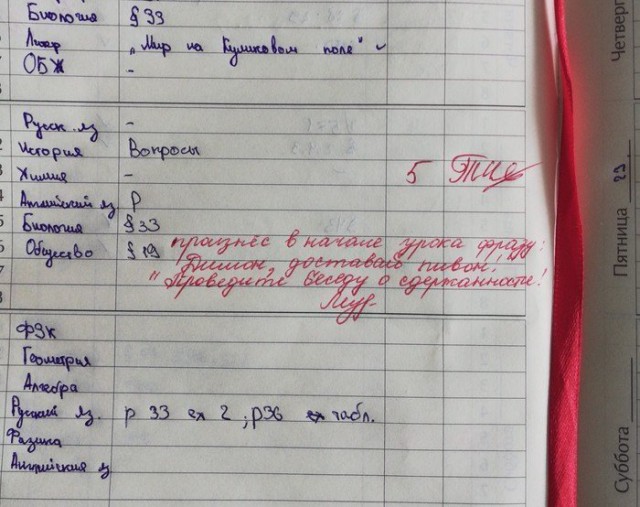 Биология § 33
Литер „Мир на Куликовом поле"
ОБЖ -
Русск. яз -
2 История Вопросы
3 Химия - 5
4 Английский яз Р
5 Биология § 33
6 Общество § 19 произнёс в начале урока фразу:
7 "Димон, доставай пивон!"
Проведите беседу о сдержанности!
8
ФЗК
Геометрия
Алгебра
Русский яз. р 33 сл 2 ; р36 табл.
Физика
Английский яз
Четверг
Пятница 29
Суббота